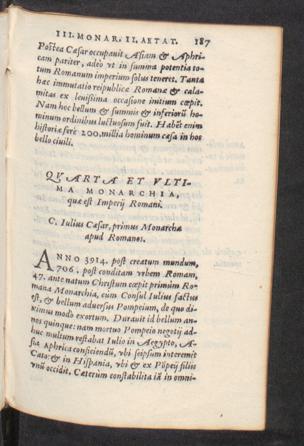 III. MONAR. II. AETAT. 187
Postea Cæsar occupauit Asiam & Aphri-
cam pariter, adeò vt in summa potentia to-
tum Romanum imperium solus teneret. Tanta
hæc immutatio reipublicæ Romanæ & cala-
mitas ex leuissima occasione initium cœpit.
Nam hoc bellum & summis & inferiorũ ho-
minum ordinibus luctuosum fuit. Habẽt enim
historiæ ferè 200. millia hominum cæsa in hoc
bello ciuili.
QVARTA ET VLTI-
MA MONARCHIA,
quæ est Imperij Romani.
C. Iulius Cæsar, primus Monarcha
apud Romanos.
ANNO 3914. post creatum mundum,
706. post conditam vrbem Romam,
47. ante natum Christum cœpit primùm Ro-
mana Monarchia, cùm Consul Iulius factus
est, & bellum aduersus Pompeium, de quo di-
ximus modo exortum. Durauit id bellum an-
nos quinque: nam mortuo Pompeio negotij ad-
huc multum restabat Iulio in Aegypto, A-
sia Aphrica conficiendũ, vbi seipsum interemit
Cato: & in Hispania, vbi & ex Põpeij filijs
vnũ occidit. Cæterum constabilita iã in omni-